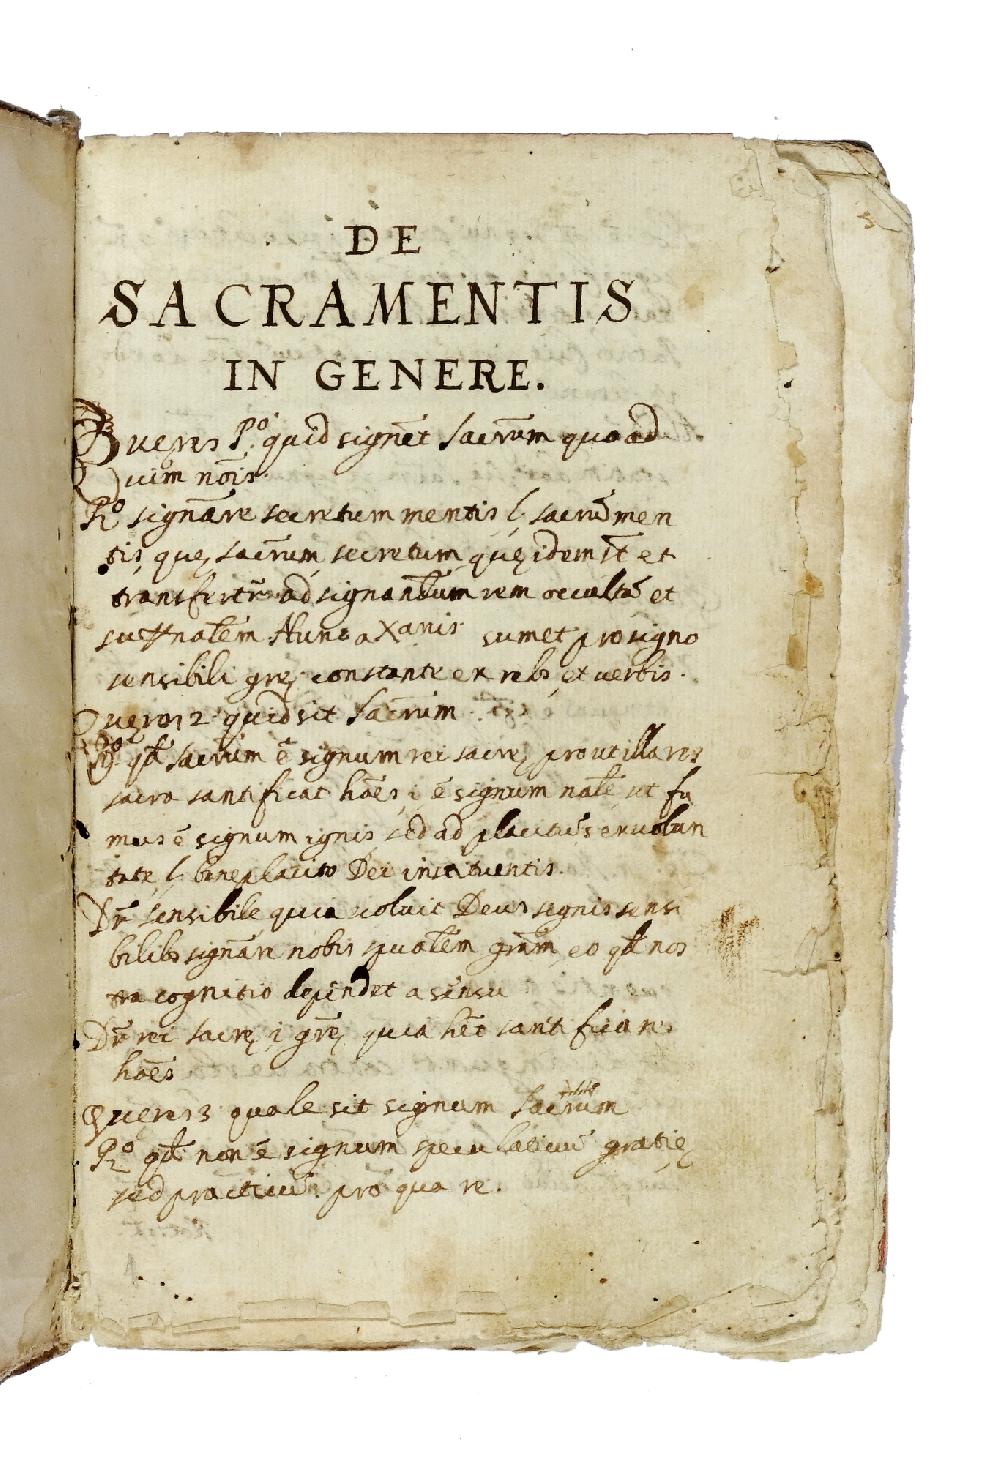 DE
SACRAMENTIS
IN GENERE.
Queres P.º quid signēt sacrūm quoad
uim nōis.
R.º signāre secretum mentis, l. sacrū men
tis, que, sacrūm, secretum, quę idem st̄ et
transfertr̄ ad signandum rem occultā et
sup̄natēm Hunc a Xanis sumet pro signo
sensibili grę constante ex rebs et verbis.
Queres 2 quid sit sacrūm.
R.º qd̄ sacrūm ē signum rei sacrę, prout illa res
sacra santificat hoēs, i ē signum nāle, ut fu
mus ē signum ignis, sed ad placitū s ex uolun
tate, l. beneplacito Dei instituentis.
Dr̄ sensibile quia uoluit Deus signis sensi
bilibs signāre nobis spualēm grām, eo qd̄ nos
tra cognitio dependet a sensu
Dr̄ rei sacrę, i grę, quia hēt santificare
hoēs
Queres 3 quale sit signum sacrūm
R.º qd̄ non ē signum speculatiuū gratię
sed practicū. pro qua re.